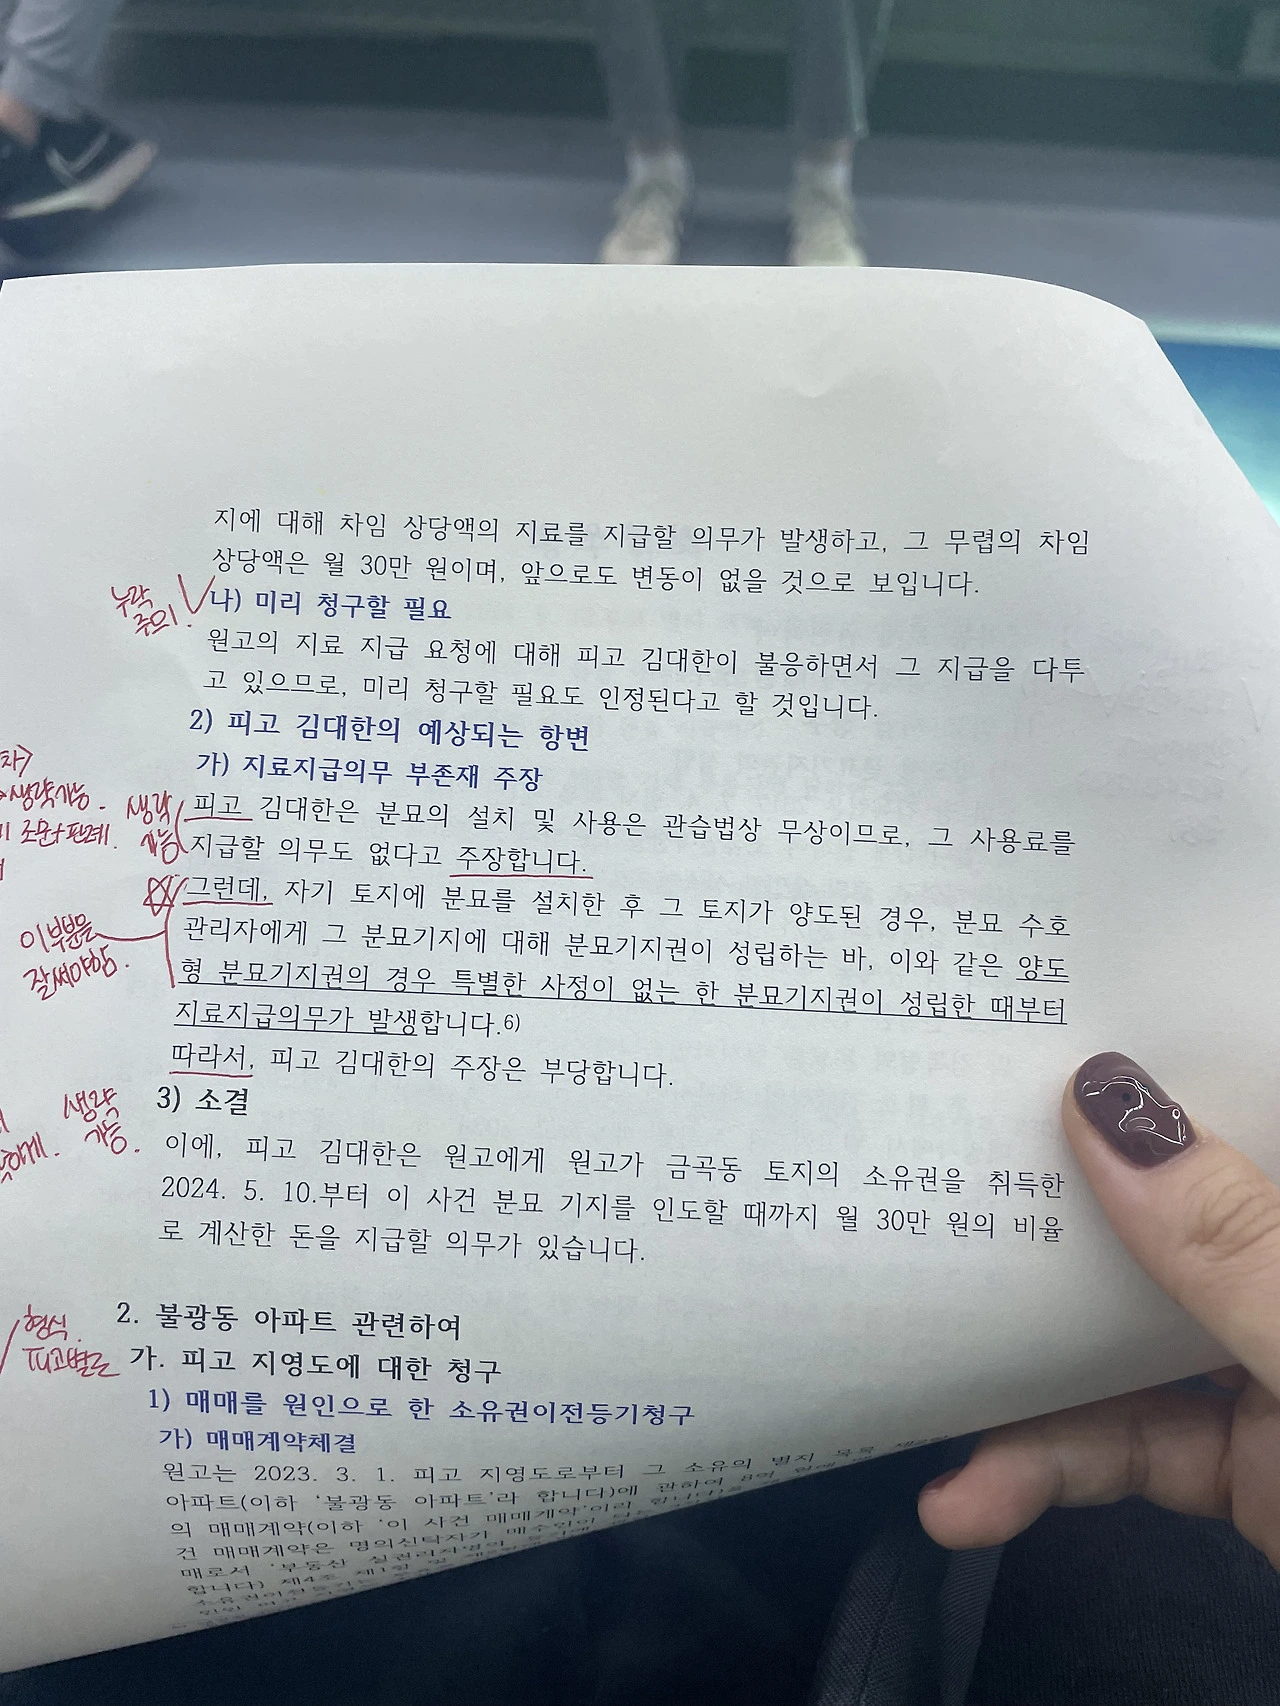 지에 대해 차임 상당액의 지료를 지급할 의무가 발생하고, 그 무렵의 차임
상당액은 월 30만 원이며, 앞으로도 변동이 없을 것으로 보입니다.
누락
주의!
나) 미리 청구할 필요
원고의 지료 지급 요청에 대해 피고 김대한이 불응하면서 그 지급을 다투
고 있으므로, 미리 청구할 필요도 인정된다고 할 것입니다.
2) 피고 김대한의 예상되는 항변
가) 지료지급의무 부존재 주장
생략가능.
조문+판례.
생략
가능
피고 김대한은 분묘의 설치 및 사용은 관습법상 무상이므로, 그 사용료를
지급할 의무도 없다고 주장합니다.
그런데, 자기 토지에 분묘를 설치한 후 그 토지가 양도된 경우, 분묘 수호
이부분을
잘써야함.
관리자에게 그 분묘기지에 대해 분묘기지권이 성립하는 바, 이와 같은 양도
형 분묘기지권의 경우 특별한 사정이 없는 한 분묘기지권이 성립한 때부터
지료지급의무가 발생합니다.6)
따라서, 피고 김대한의 주장은 부당합니다.
3) 소결
생략
가능.
이에, 피고 김대한은 원고에게 원고가 금곡동 토지의 소유권을 취득한
2024. 5. 10.부터 이 사건 분묘 기지를 인도할 때까지 월 30만 원의 비율
로 계산한 돈을 지급할 의무가 있습니다.
2. 불광동 아파트 관련하여
형식
피고별로
가. 피고 지영도에 대한 청구
1) 매매를 원인으로 한 소유권이전등기청구
가) 매매계약체결
원고는 2023. 3. 1. 피고 지영도로부터 그 소유의 별지 목록
아파트(이하 '불광동 아파트'라 합니다)에 관하여 8억
의 매매계약(이하 '이 사건 매매계약'이라 합니다)을
건 매매계약은 명의신탁자가 매수인이
매로서 '부동산 실권리자명의
합니다) 제4조 제1항 및